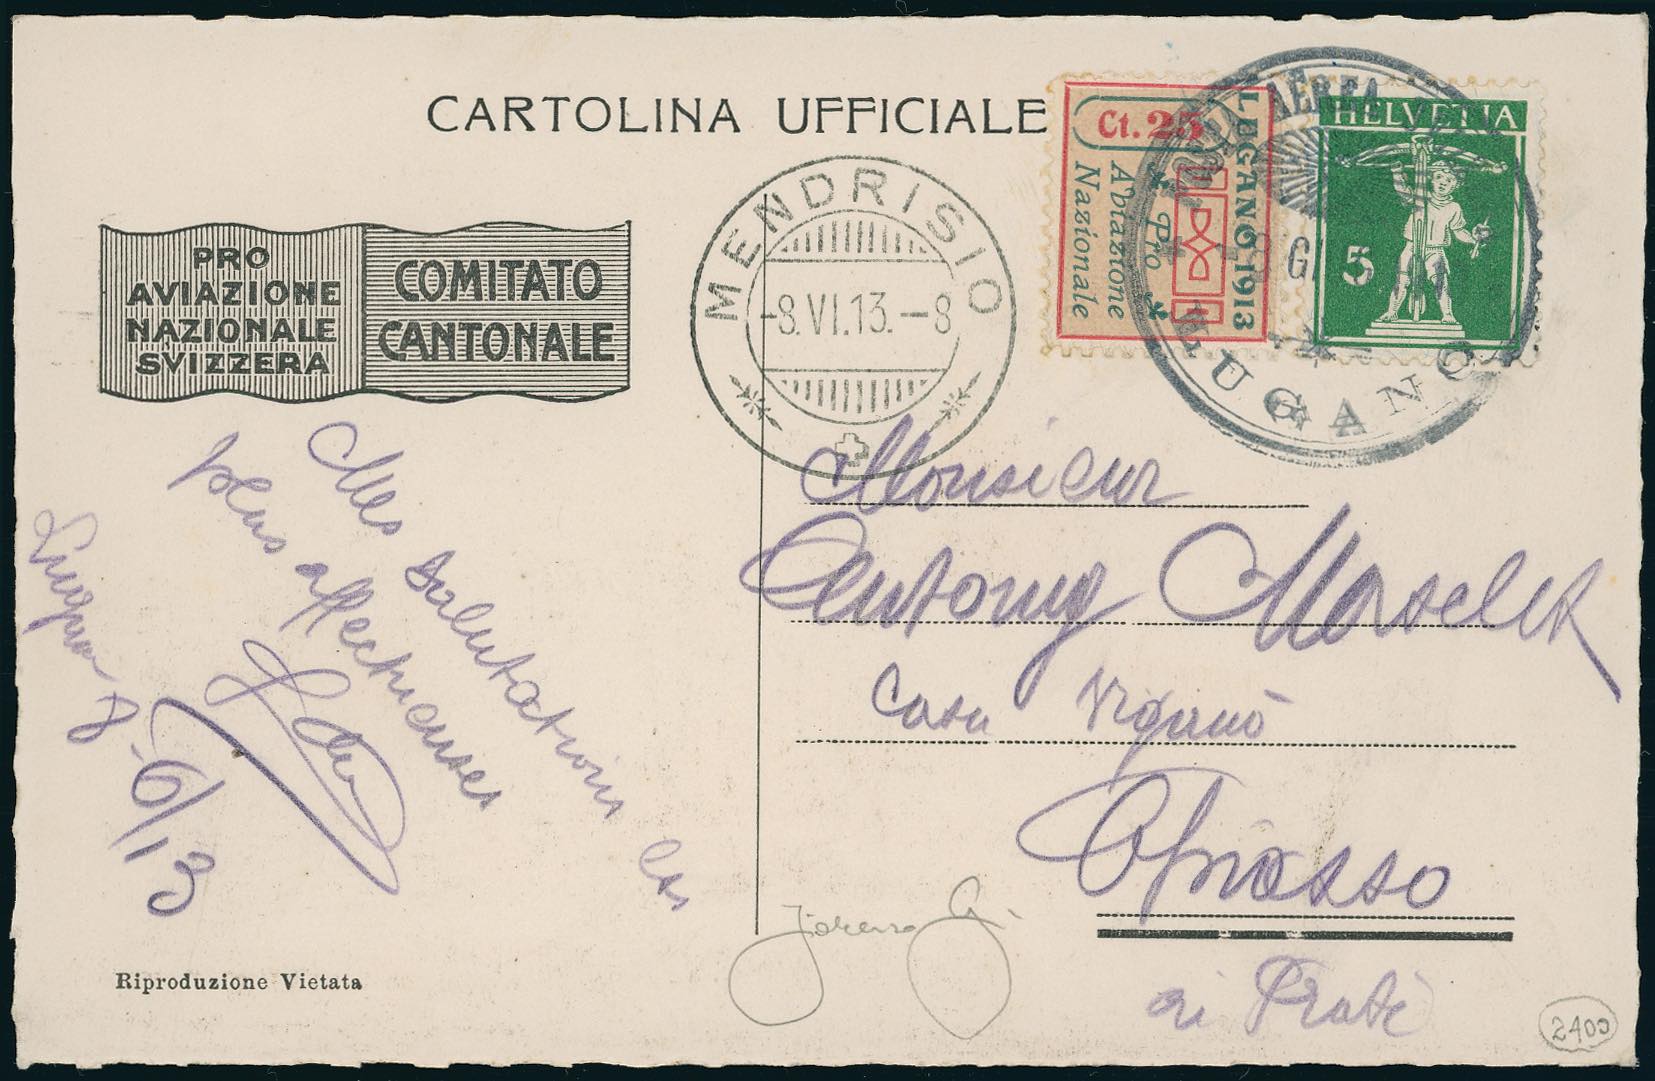 CARTOLINA UFFICIALE
PRO
AVIAZIONE
NAZIONALE
SVIZZERA
COMITATO
CANTONALE
MENDRISIO
-8.VI.13.-8
Ct. 25
LUGANO, 1913
Pro
Aviazione
Nazionale
HELVETIA
5
AEREA
LUGANO
Mes salutations les
plus affectueuses
Lugano 8-6/13
Monsieur
Antony
Casa Viganò
ai Prati
Riproduzione Vietata
2400